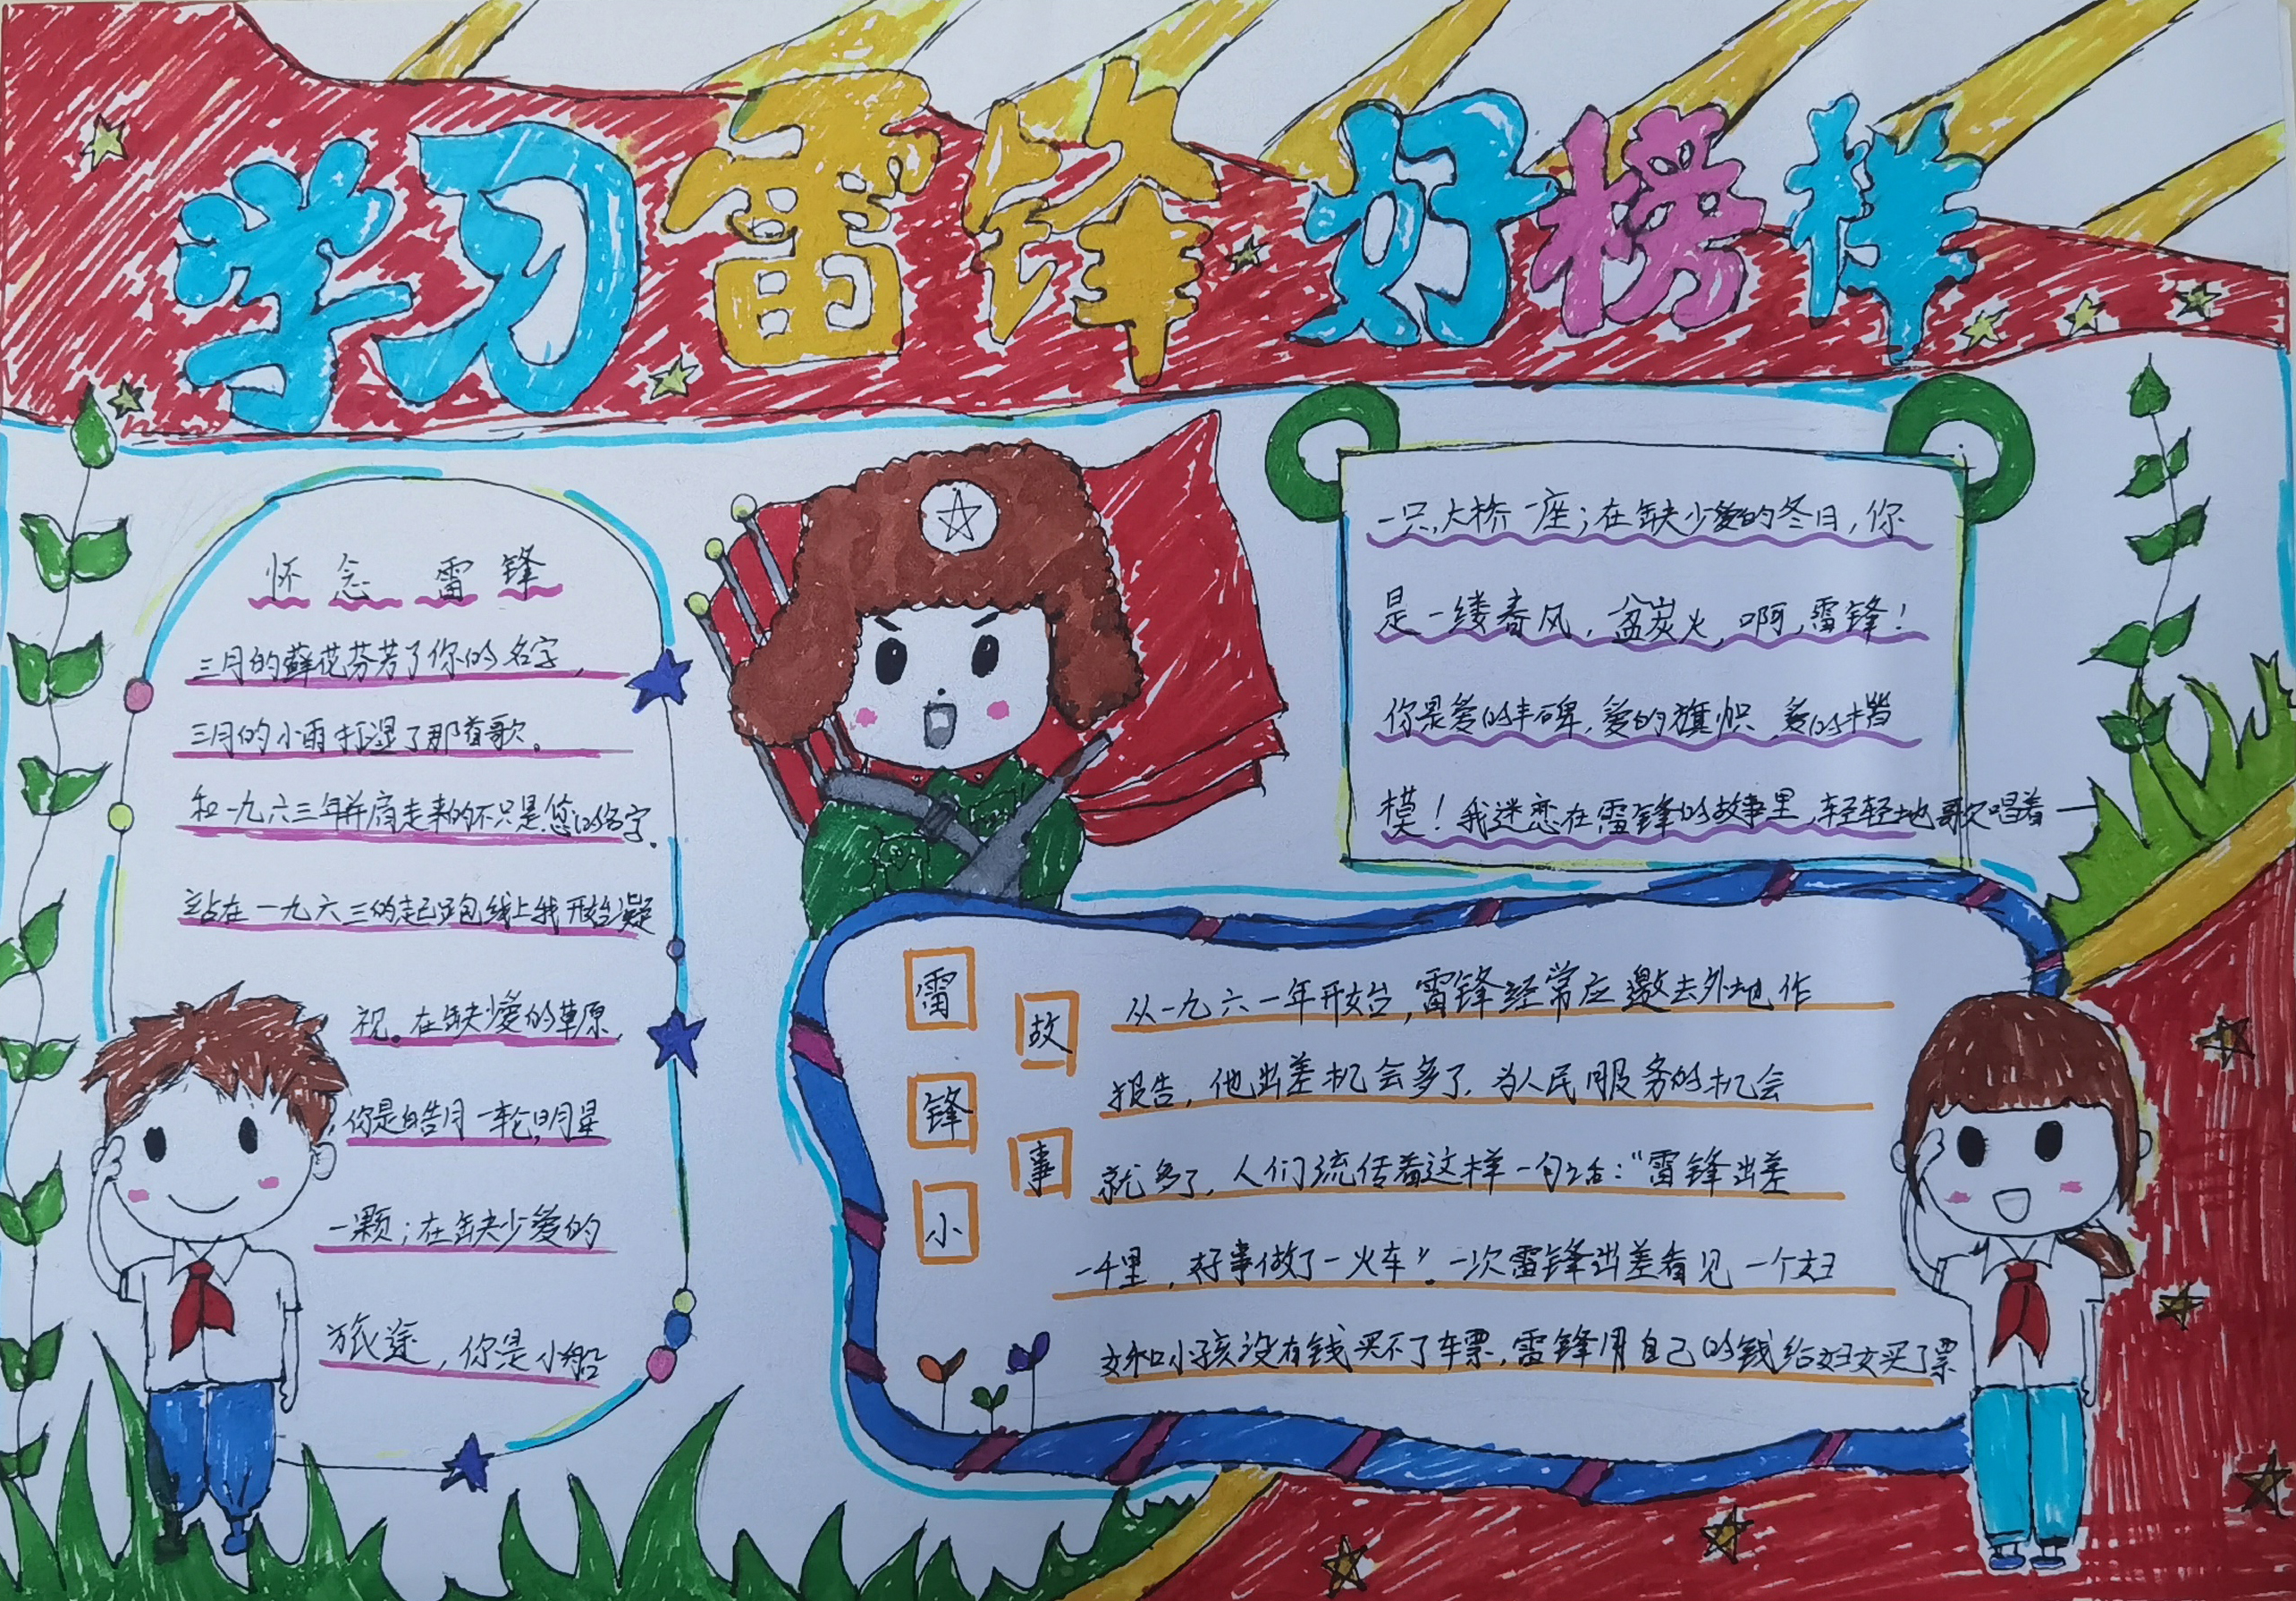 学习雷锋好榜样
怀念雷锋
三月的鲜花芬芳了你的名字，
三月的小雨打湿了那首歌。
和一九六三年并肩走来的不只是您的名字。
站在一九六三的起跑线上我开始凝
视。在缺少爱的草原，
你是皓月一轮，明星
一颗；在缺少爱的
旅途，你是小船
一只，大桥一座；在缺少爱的冬日，你
是一缕春风，盆炭火，啊，雷锋！
你是爱的丰碑，爱的旗帜，爱的楷
模！我迷恋在雷锋的故事里，轻轻地歌唱着一
雷锋小故事
从一九六一年开始，雷锋经常应邀去外地作
报告，他出差机会多了，为人民服务的机会
就多了，人们流传着这样一句话：“雷锋出差
一千里，好事做了一火车”。一次雷锋出差看见一个妇
女和小孩没有钱买不了车票，雷锋用自己的钱给妇女买了票